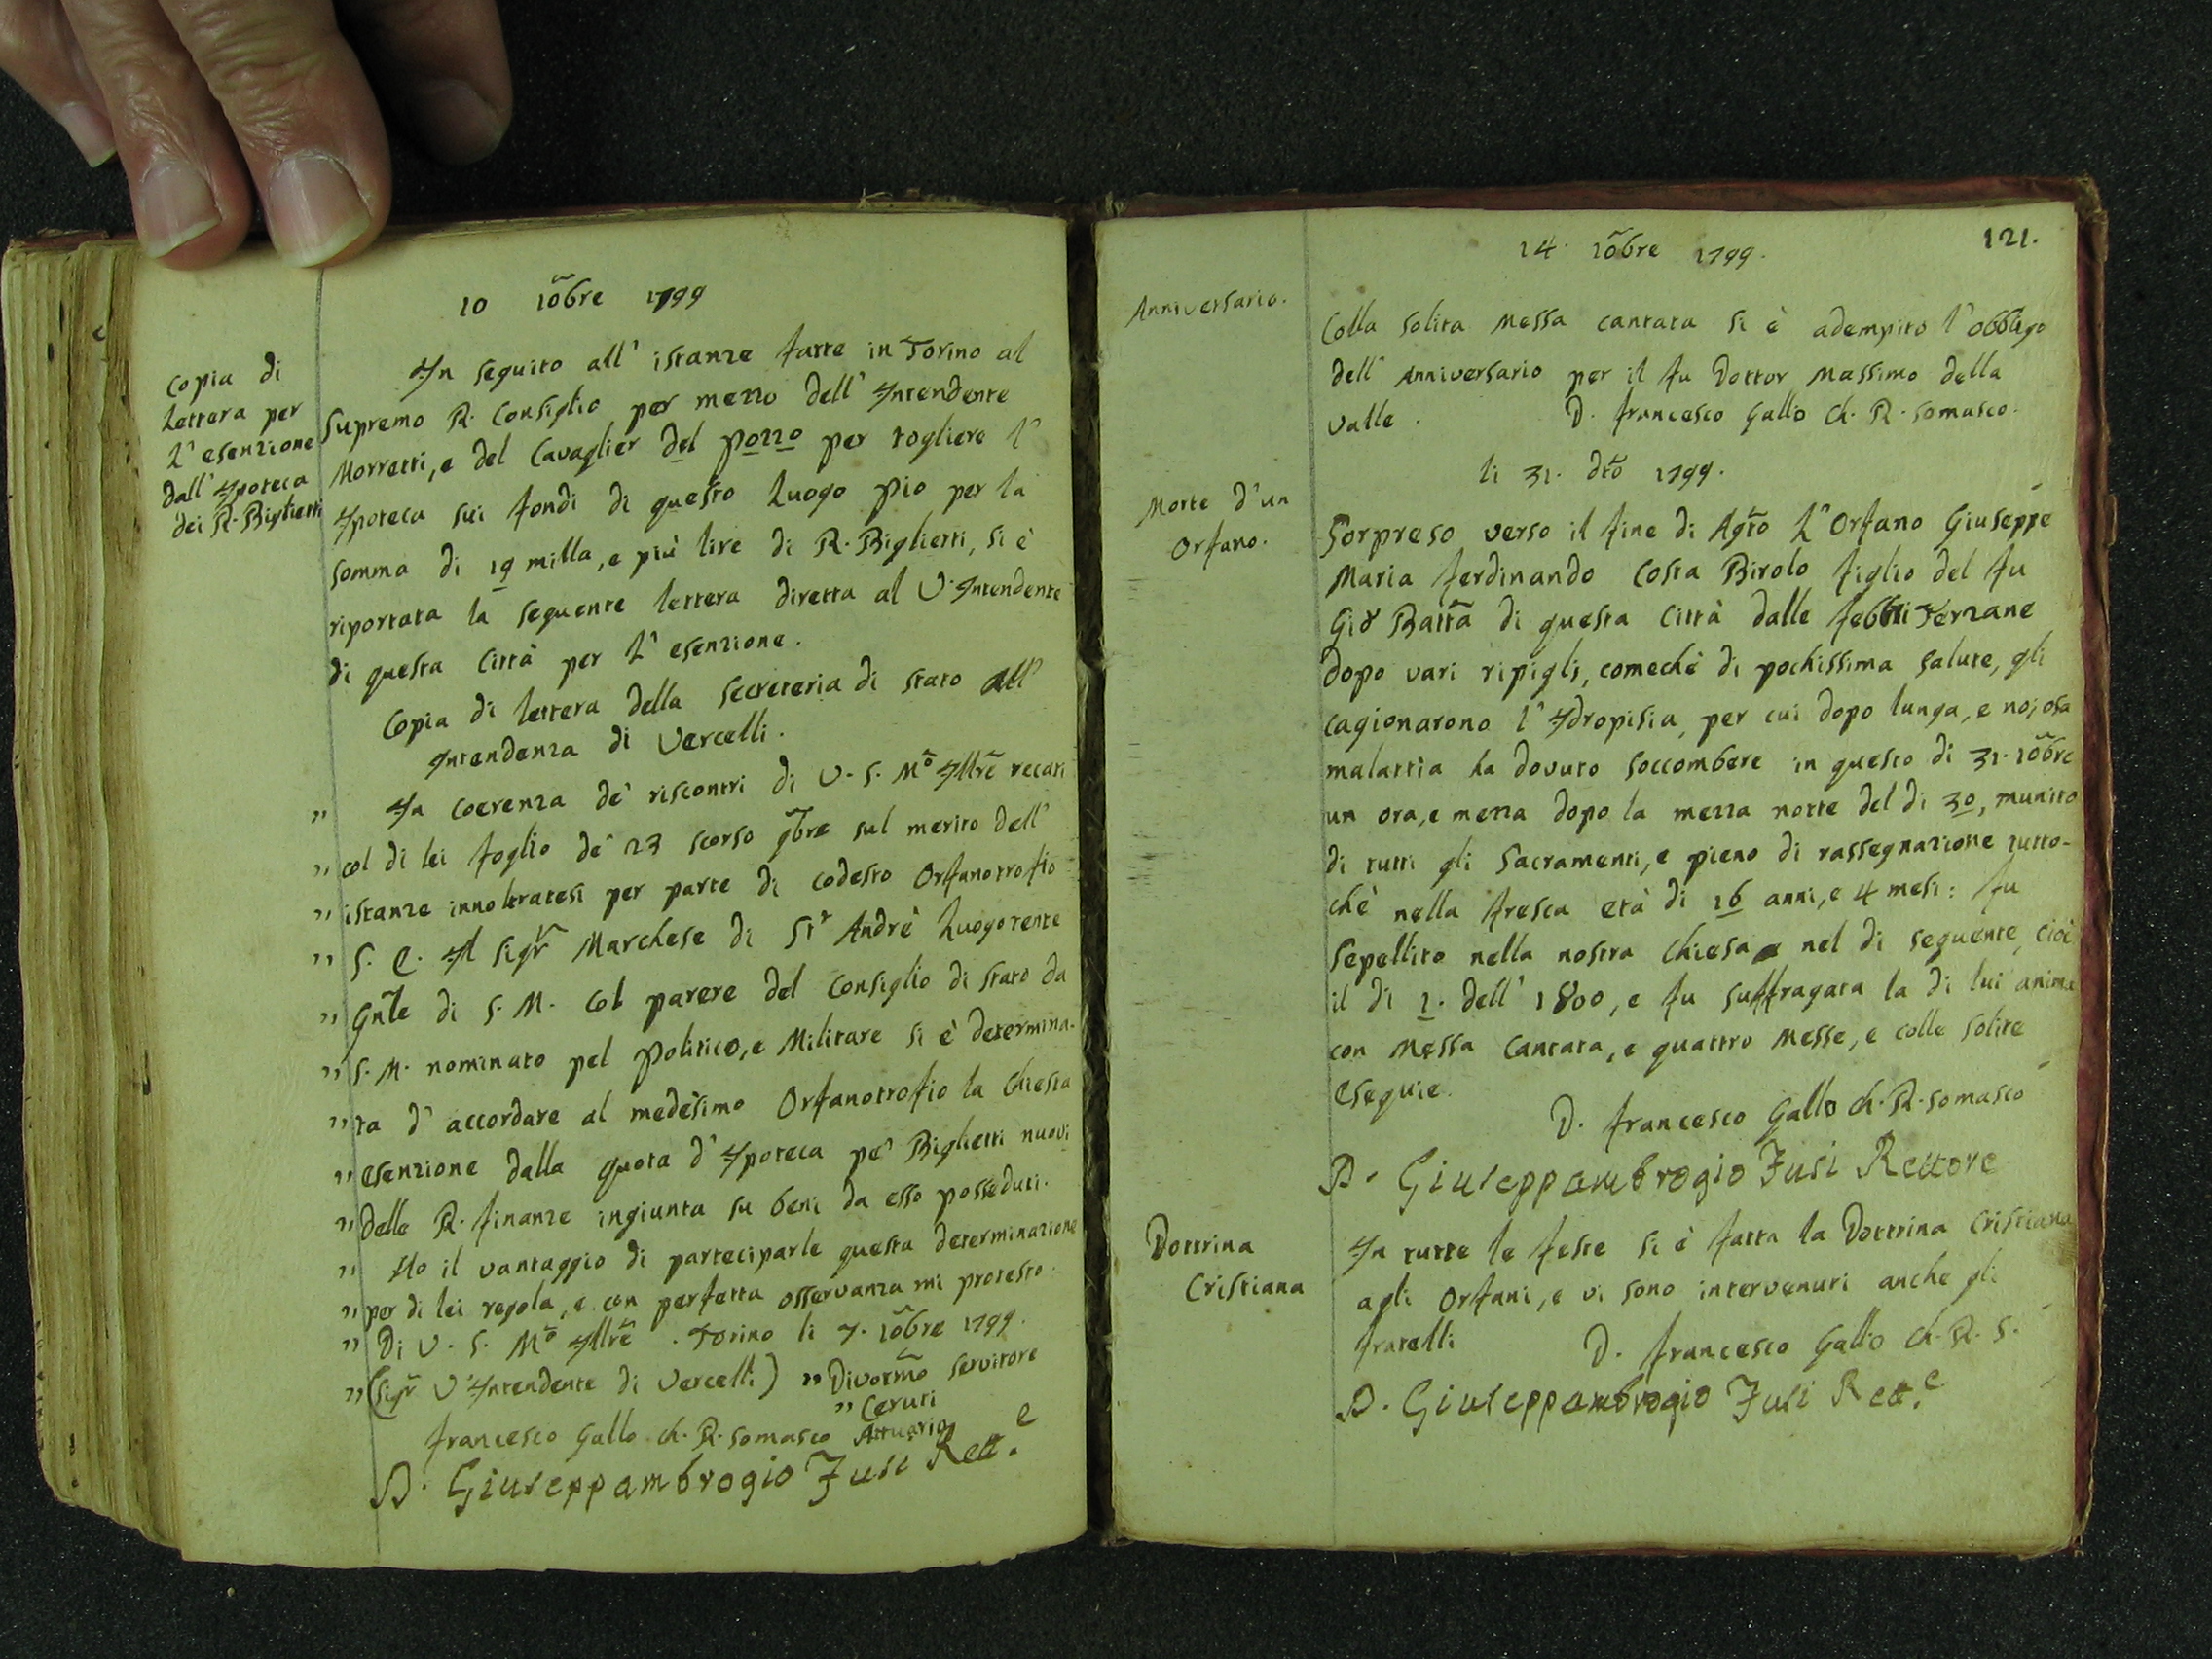 10 10bre 1799
Copia di
Lettera per
l'esenzione
dall'Ipoteca
dei R. Biglietti
In seguito all'istanze fatte in Torino al
Supremo R. Consiglio per mezzo dell'Intendente
Morretti, e del Cavaglier del Pozzo per togliere l'
Ipoteca sui fondi di questo Luogo Pio per la
somma di 19 milla, e più lire di R. Biglietti, si è
riportata la seguente lettera diretta al V. Intendente
di questa Città per l'esenzione.
Copia di lettera della Secreteria di stato all'
Intendenza di Vercelli.
" In coerenza de' riscontri di V. S. Mo Illre recati
" col di lei foglio de' 23 scorso 9bre sul merito dell'
" istanze innoltratesi per parte di codesto Orfanotrofio
" S. E. Il Sigr Marchese di St Andrè Luogotente
" Gnle di S. M. col parere del Consiglio di stato da
" S. M. nominato pel Politico, e Militare si è determina-
" ta d'accordare al medesimo Orfanotrofio la chiesta
" esenzione dalla quota d'Ipoteca pe' Biglietti nuovi
" delle R. finanze ingiunta su beni da esso posseduti.
" Ho il vantaggio di parteciparle questa determinazione
" per di lei regola, e con perfetta osservanza mi protesto.
" Di V. S. Mo Illre . Torino li 7. 10bre 1799.
" (Sigr V. Intendente di Vercelli) " Divotmo servitore
" Ceruti
francesco Gallo ch. R. somasco Attuario
D. Giuseppambrogio Fusi Rett.e
121.
14. 10bre 1799.
Anniversario.
Colla solita Messa cantata si è adempito l'obbligo
dell'Anniversario per il fu Dottor Massimo della
Valle. D. francesco Gallo ch. R. somasco.
li 31. dto 1799.
Morte d'un
Orfano.
Sorpreso verso il fine di Agto l'Orfano Giuseppe
Maria ferdinando Costa Birolo figlio del fu
Gio Batta di questa Città dalle febbri Terzane
dopo vari ripigli, comechè di pochissima salute, gli
cagionarono l'Idropisia, per cui dopo lunga, e nojosa
malattia ha dovuto soccombere in questo di 31. 10bre
un ora, e mezza dopo la mezza notte del di 30, munito
di tutti gli Sacramenti, e pieno di rassegnazione tutto-
chè nella fresca età di 16 anni, e 4 mesi: fu
sepellito nella nostra Chiesa nel di seguente, cioè
il di 1. dell'1800, e fu suffragata la di lui anima
con Messa Cantata, e quattro Messe, e colle solite
Esequie.
D. francesco Gallo ch. R. somasco
D. Giuseppambrogio Fusi Rettore
Dottrina
Cristiana
In tutte le feste si è fatta la Dottrina Cristiana
agli Orfani, e vi sono intervenuti anche gli
fratelli D. francesco Gallo ch. R. S.
D. Giuseppambrogio Fusi Rett.e